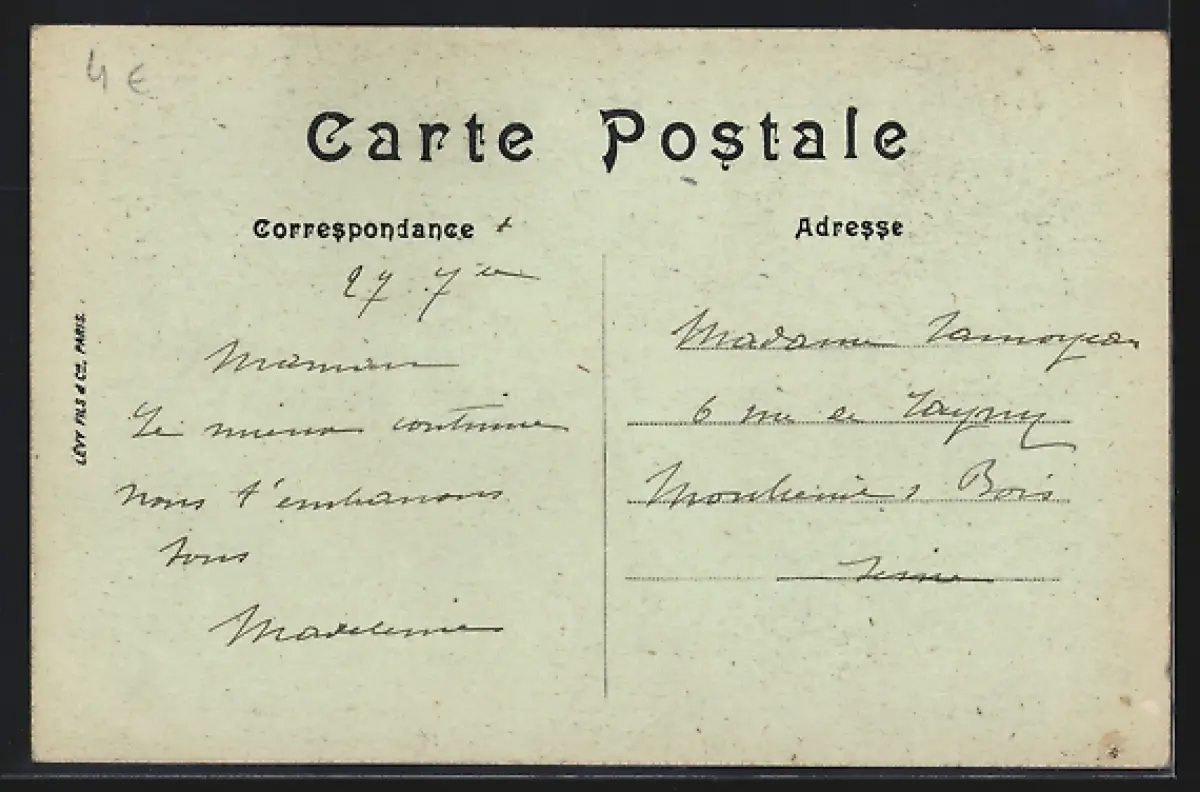 4 €
Carte Postale
Correspondance
Adresse
27 7bre
Maman
Le mieux continue
nous t'embrassons
tous
Madeleine
Madame
6 rue de
Bois
Seine
LÉVY FILS & Cie, PARIS.